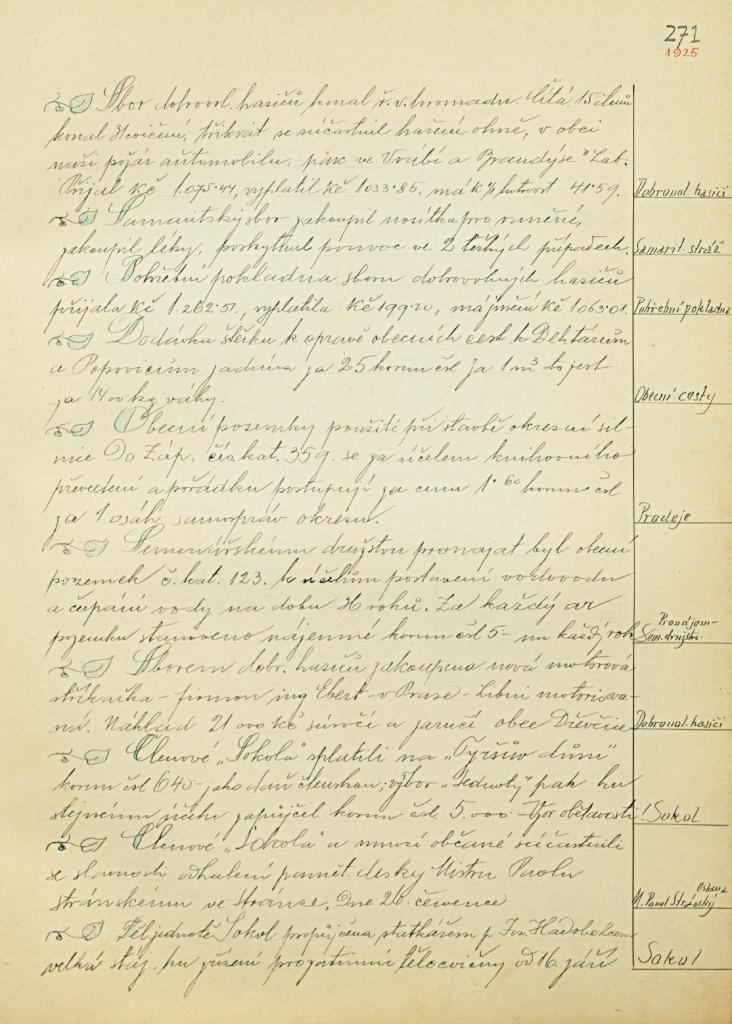 271
1925
Sbor dobrovol. hasičů konal ř. v. hromadu. Čítá 15 členů
konal 4 cvičení, třikrát se súčastnil hašení ohně, v obci
naší požár automobilu, pak ve Vrábí a Brandýse n/Lab.
Přijal Kč 1.075·44, vyplatil Kč 1033·85, má k hotovost 41·59.
Dobrovol. hasiči
Samaritský sbor zakoupil nosítka pro raněné,
zakoupil léky, poskytnul pomoc ve 2 těžkých případech.
Samarit. stráž
Pohřební pokladna sboru dobrovolných hasičů
přijala Kč 1.262·51, vyplatila Kč 199·20, má jmění Kč 1063·01.
Pohřební pokladna
Dodávka štěrku k opravě obecních cest k Dehtárům
a Popovicům zadána za 25 korun čsl za 1 m³ to jest
za 1400 kg váhy.
Obecní cesty
Obecní pozemky použité při stavbě okresní sil-
nice Do Záp, čís. kat. 359. se za účelem knihovního
převedení a pořádku postupují za cenu 1·60 korun čsl
za 1 osáh samospráv. okresu.
Prodeje
Semenářskému družstvu pronajat byl obecní
pozemek č. kat. 123. k účelům postavení vodovodu
a čerpání vody na dobu 36 roků. Za každý ar
pozemku stanoveno nájemné korun čsl 5- na každý rok
Pronájem-
Sem. družstv.
Sborem dobr. hasičů zakoupena nová motorová
stříkačka - firmou ing Ebert - v Praze - Libni motorisova-
ná. Náklad 21 000 Kč súročí a zaručí obec Dřevčice
Dobrovol. hasiči
Členové „Sokola" splatili na „Tyršův dům"
korun čsl 640- jako daň členskou; výbor „Jednoty" pak ku
stejnému účelu zapůjčil korun čsl. 5.000- Vzor obětavosti!
Sokol
Členové „Sokola" a mnozí občané súčastnili
se slavnosti odhalení pamět. desky Mistru Pavlu
Stránskému ve Stránce, Dne 26. července
M. Pavel Stránský
Těl. jednotě Sokol propůjčena statkářem p. Jos. Hadobalcem
velká stáj, ku zřízení prozatimní tělocvičny od 16. září.
Sokol